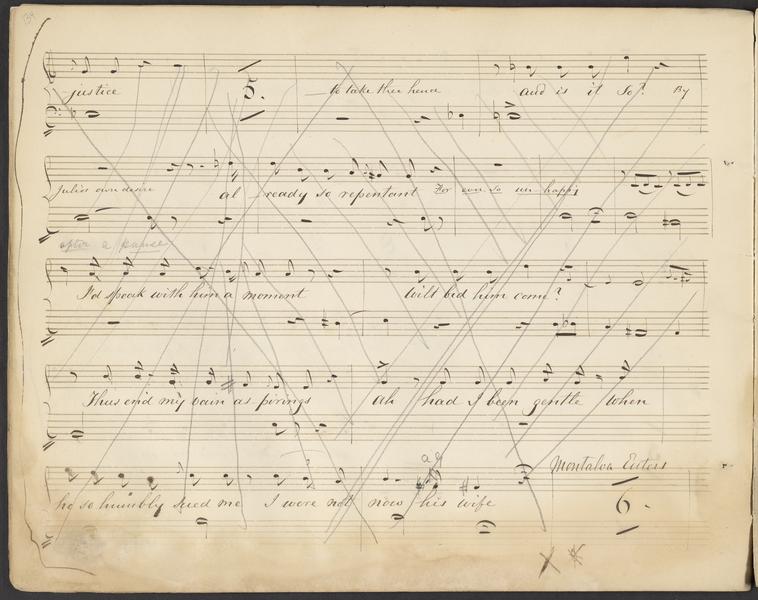 134
justice 5. to take thee hence and is it so? By
Julia's own desire al_ready so repentant For ever so un_happy
after a pause
I'd speak with him a moment Wilt bid him come?
Thus end my vain as_pirings ah had I been gentle when
Montalva Enters
he so humbly sued me I were not now his wife 6.